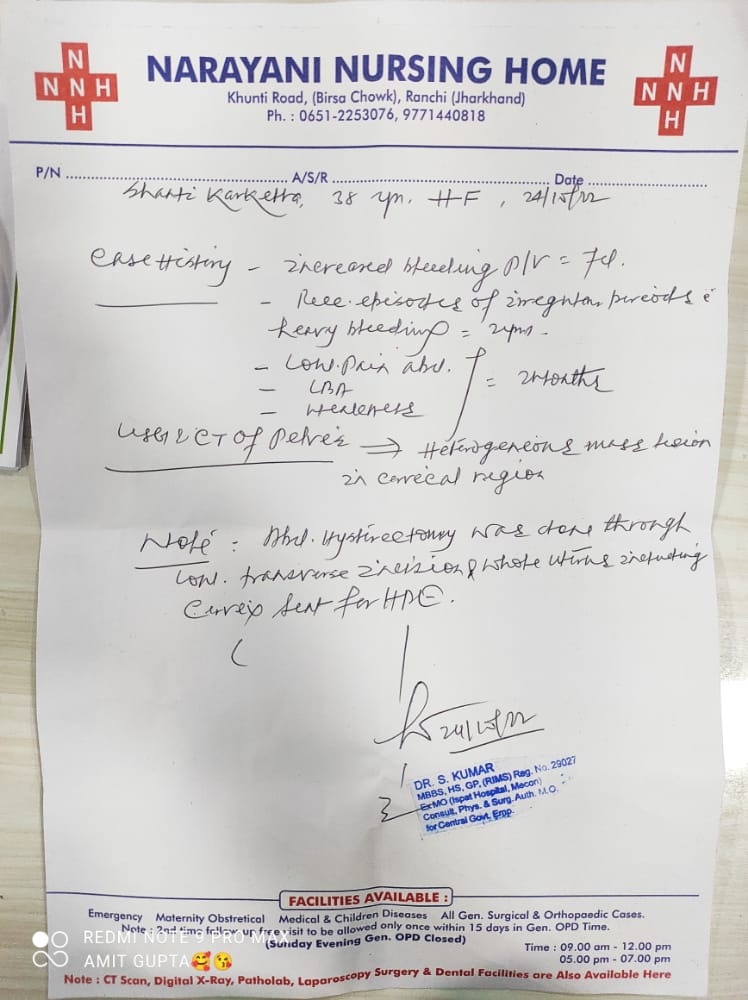 N
N N H
H
NARAYANI NURSING HOME
Khunti Road, (Birsa Chowk), Ranchi (Jharkhand)
Ph. : 0651-2253076, 9771440818
N
N N H
H
P/N ........ A/S/R ........ Date ........
Shanti Karketta, 38 yrs. H F, 24/10/22
Case History - increased bleeding P/V = 7d.
- Rece. episodes of irregular periods c̄
heavy bleeding = 2yrs.
- Low. Pain abd.
- LBA = 2months
- Weakness
USG & CT Of Pelvis → Heterogeneous mass lesion
in cervical region
Note : Abd. Hysterectomy was done through
Low. transverse incision & whole uterus including
Cervix sent for HPE.
24/10/22
DR. S. KUMAR
MBBS, HS, GP, (RIMS) Reg. No. 29027
Ex MO (Ispat Hospital, Mecon)
Consult, Phys. & Surg. Auth. M.O.
for Central Govt. Emp.
FACILITIES AVAILABLE :
Emergency Maternity Obstretical Medical & Children Diseases All Gen. Surgical & Orthopaedic Cases.
Note : 2nd time follow up free visit to be allowed only once within 15 days in Gen. OPD Time.
(Sunday Evening Gen. OPD Closed)
Time : 09.00 am - 12.00 pm
05.00 pm - 07.00 pm
Note : CT Scan, Digital X-Ray, Patholab, Laparoscopy Surgery & Dental Facilities are Also Available Here
REDMI NOTE 9 PRO MAX
AMIT GUPTA🥰😘